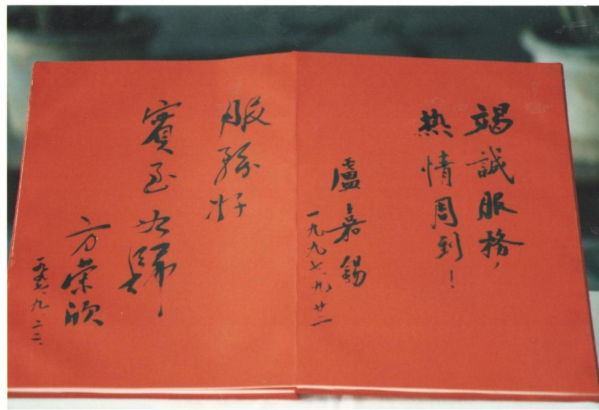 竭誠服務，
热情周到！
盧嘉錫
一九九七.九.廿二
服務好
賓至如歸
方荣欣
一九九七.九.二二.